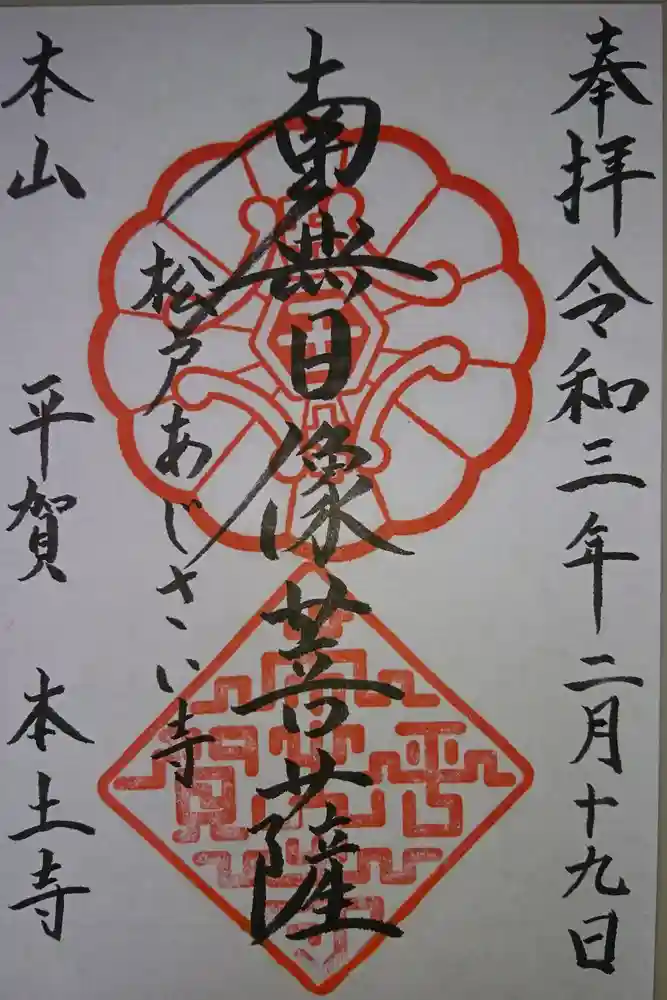 奉拝 令和三年二月十九日
南無日像菩薩
松戸あじさい寺
本山 平賀 本土寺